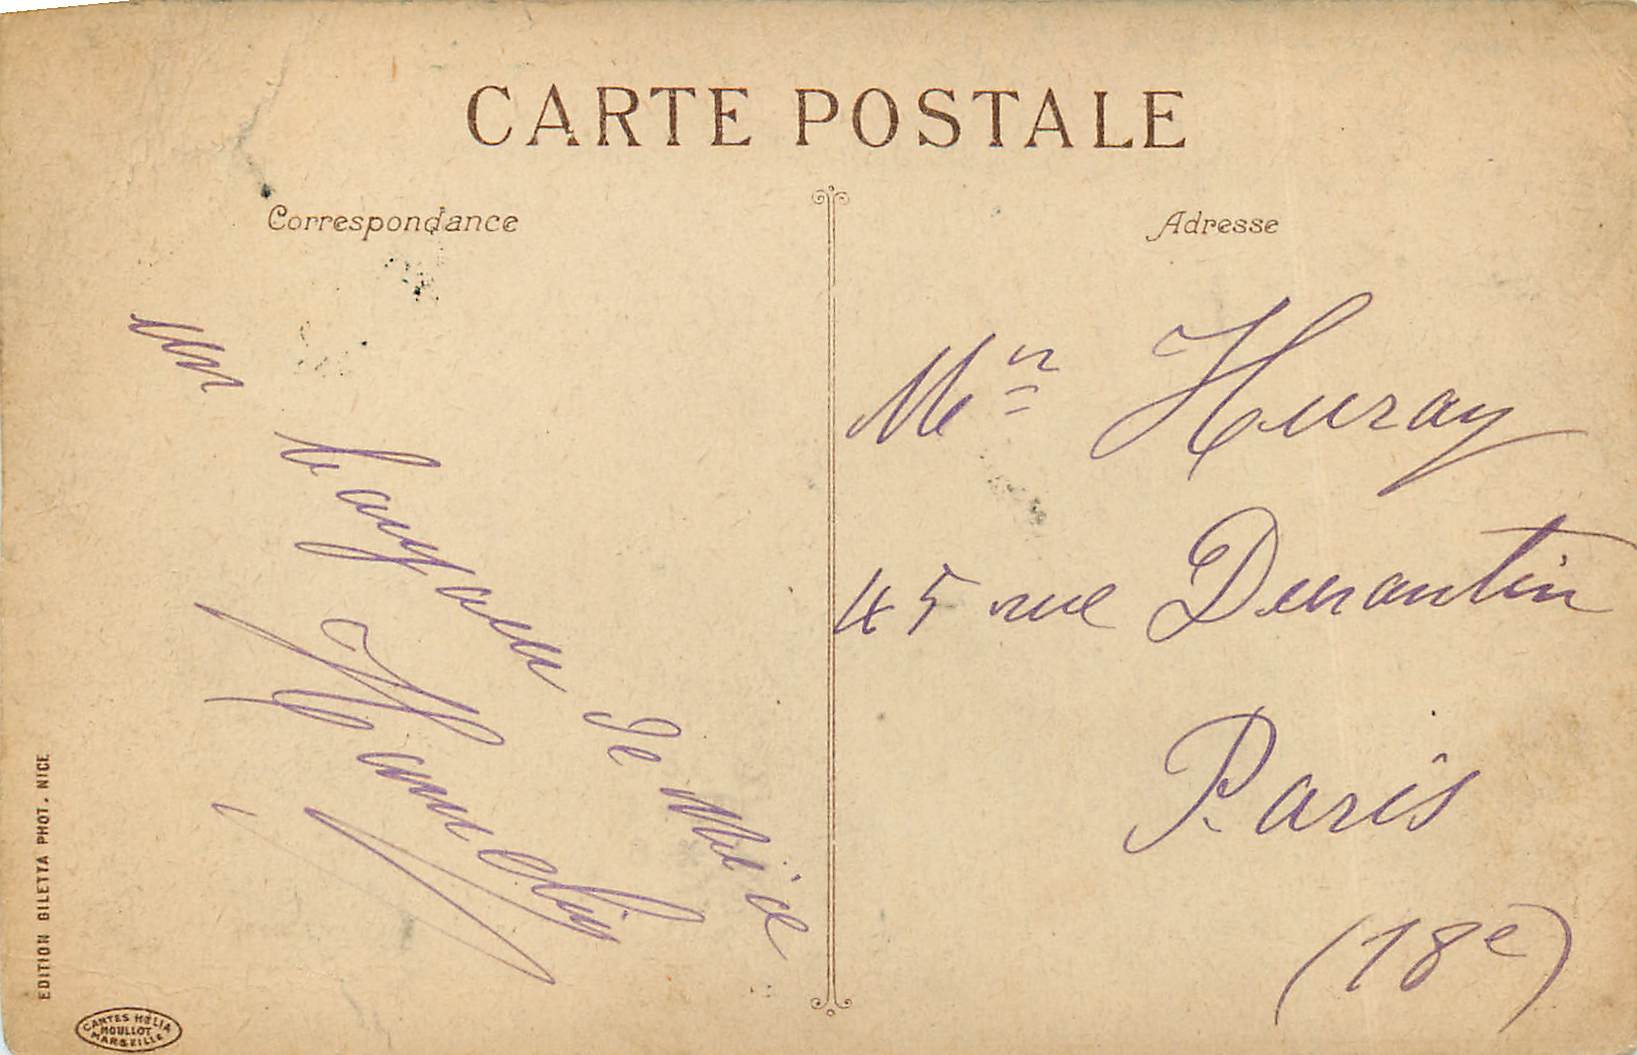 CARTE POSTALE
Correspondance
Adresse
un
bonjour de Nice
Mr Huray
45 rue Durantin
Paris
(18e)
EDITION GILETTA PHOT. NICE
CARTES HELIA
MOULLOT
MARSEILLE